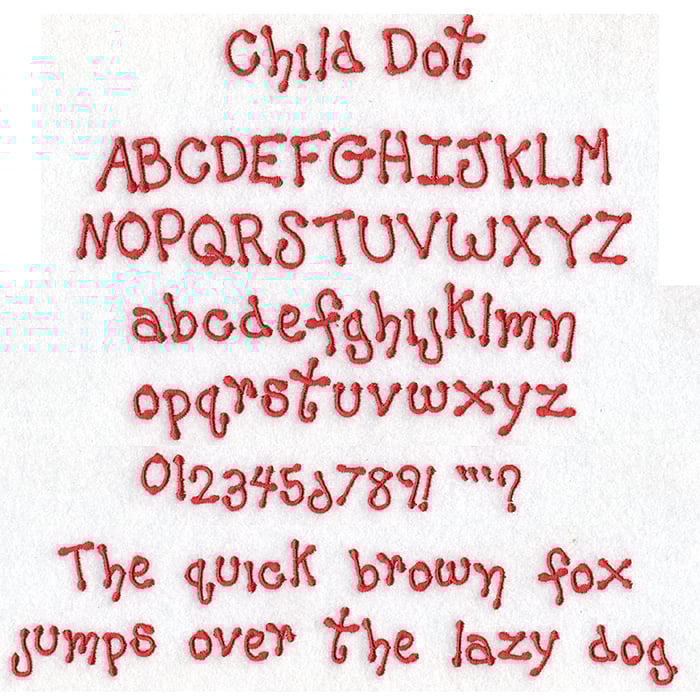 Child Dot
ABCDEFGHIJKLM
NOPQRSTUVWXYZ
abcdefghijklmn
opqrstuvwxyz
0123456789! """?
The quick brown fox
jumps over the lazy dog.